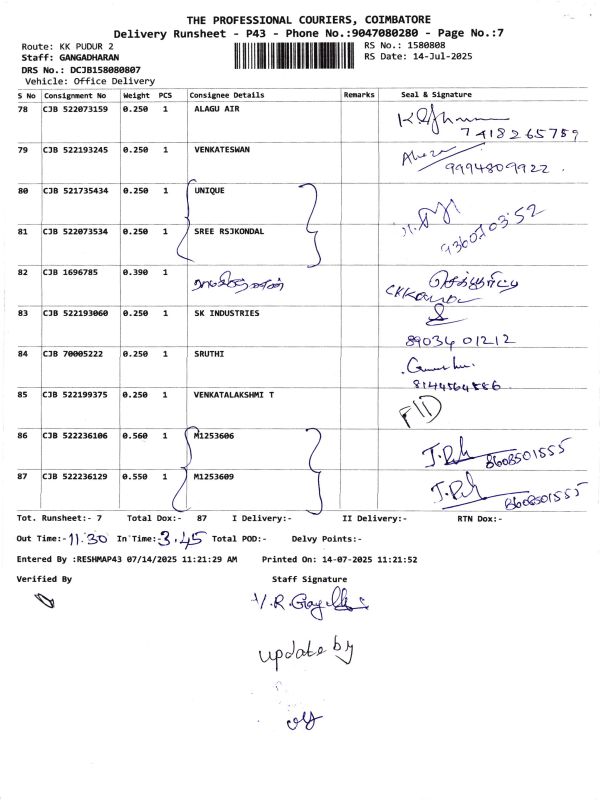 THE PROFESSIONAL COURIERS, COIMBATORE
Delivery Runsheet - P43 - Phone No.:9047080280 - Page No.:7
Route: KK PUDUR 2
RS No.: 1580808
Staff: GANGADHARAN
RS Date: 14-Jul-2025
DRS No.: DCJB158080807
Vehicle: Office Delivery
S No Consignment No Weight PCS Consignee Details Remarks Seal & Signature
78 CJB 522073159 0.250 1 ALAGU AIR
7418265759
79 CJB 522193245 0.250 1 VENKATESWAN
9994809922
80 CJB 521735434 0.250 1 UNIQUE
81 CJB 522073534 0.250 1 SREE RSJKONDAL
82 CJB 1696785 0.390 1
83 CJB 522193060 0.250 1 SK INDUSTRIES
89034 01212
84 CJB 70005222 0.250 1 SRUTHI
8144564886
85 CJB 522199375 0.250 1 VENKATALAKSHMI T
86 CJB 522236106 0.560 1 M1253606
8608501555
87 CJB 522236129 0.550 1 M1253609
8608501555
Tot. Runsheet:- 7 Total Dox:- 87 I Delivery:- II Delivery:- RTN Dox:-
Out Time:-11.30 In Time:-3.45 Total POD:- Delvy Points:-
Entered By :RESHMAP43 07/14/2025 11:21:29 AM Printed On: 14-07-2025 11:21:52
Verified By Staff Signature
update by